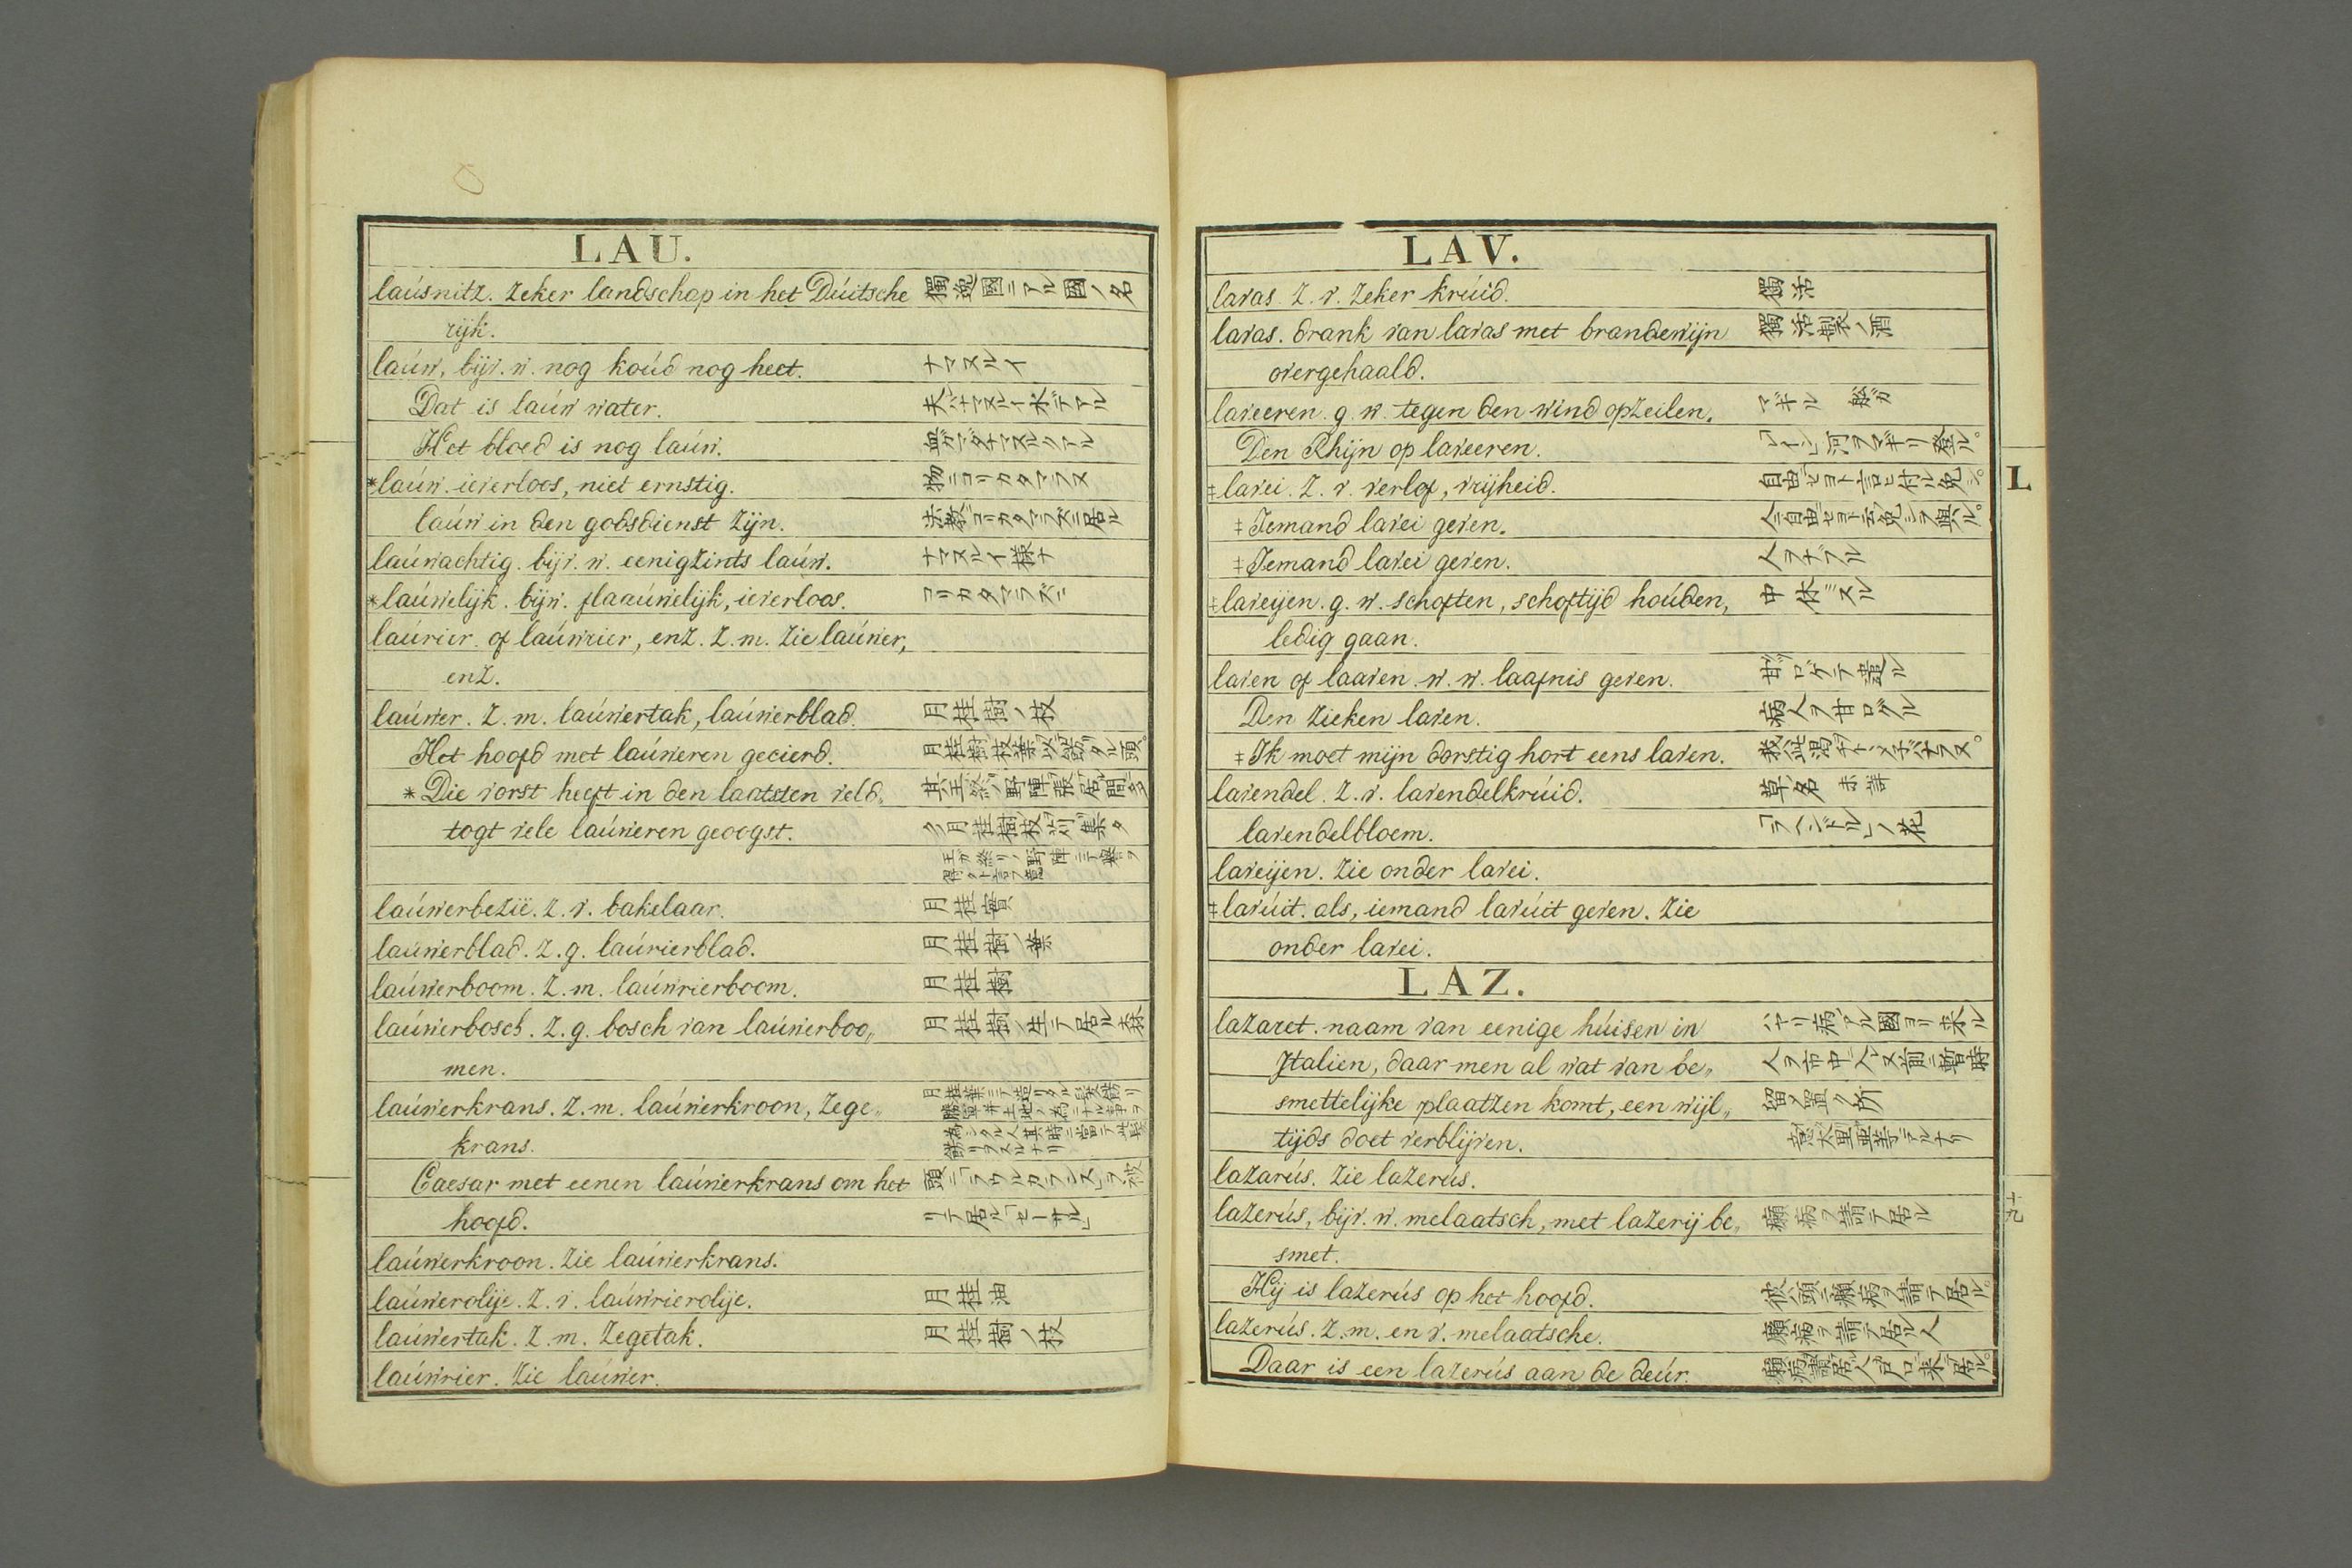 LAU.
laúsnitz. zeker landschap in het Dúitsche 獨逸國ニアル國ノ名
rijk.
laúw, bijv. w. nog koúd nog heet. ナマヌルイ
Dat is laúw water. 夫ハナマヌルイ水デアル
Het bloed is nog laúw. 血ガマダナマヌルクアル
*laúw. ieverloos, niet ernstig. 物ニコリカタマラヌ
laúw in den godsdienst zijn. 法教ニコリカタマラズニ居ル
laúwachtig. bijv. w. eenigzints laúw. ナマヌルイ様ナ
*laúwelijk. bijw. flaaúwelijk, ieverloos. コリカタマラズニ
laúrier. of laúwrier, enz. z. m. zie laúwer,
enz.
laúwer. z. m. laúwertak, laúwerblad. 月桂樹ノ枝
Het hoofd met laúweren gecierd. 月桂樹ノ枝葉ヲ以テ飾リタル頭。
* Die vorst heeft in den laatsten veld„
togt vele laúweren geoogst.
laúwerbezië. z. v. bakelaar. 月桂實
laúwerblad. z. g. laúrierblad. 月桂樹ノ葉
laúwerboom. z. m. laúwrierboom. 月桂樹
laúwerbosch. z. g. bosch van laúwerboo„ 月桂樹ノ生テ居ル森
men.
laúwerkrans. z. m. laúwerkroon, zege„
krans.
Caesar met eenen laúwerkrans om het 頭ニ「ラウルカランス」ヲ被
hoofd. リテ居ル「セーサル」
laúwerkroon. zie laúwerkrans.
laúwerolije. z. v. laúwrierolije. 月桂油
laúwertak. z. m. zegetak. 月桂樹ノ枝
laúwrier. zie laúwer.
LAV.
lavas. z. v. zeker krúid. 獨活
lavas. drank van lavas met brandewijn 獨活製ノ酒
overgehaald.
laveeren. g. w. tegen den wind opzeilen. マギル 船ガ
Den Rhijn op laveeren. 「レイン」河ヲマギリ登ル。
‡lavei. z. v. verlof, vrijheid.
‡Iemand lavei geven.
‡Iemand lavei geven.
‡laveijen. g. w. schoften, schoftijd hoúden, 中休ミスル
ledig gaan.
laven of laaven. w. w. laafnis geven.
Den zieken laven.
‡Ik moet mijn dorstig hort eens laven.
lavendel. z. v. lavendelkrúid. 草ノ名 未詳
lavendelbloem. 「ラヘンドル」ノ花
laveijen. zie onder lavei.
‡lavúit. als, iemand lavúit geven. zie
onder lavei.
LAZ.
lazaret. naam van eenige húisen in ハヤリ病アル國ヨリ来ル
Italien, daar men al wat van be„ 人ヲ市中ニ入レヌ前ニ暫時
smettelijke plaatzen komt, een wijl„ 留メ置ク所
tijds doet verblijven.
lazarús. zie lazerús.
lazerús, bijv. w. melaatsch, met lazerij be„ 癩病ヲ請テ居ル
smet.
Hij is lazerús op het hoofd. 彼ハ頭ニ癩病ヲ請テ居ル。
lazerús. z. m. en v. melaatsche. 癩病ヲ請テ居ル人
Daar is een lazerús aan de deúr.
L
十九